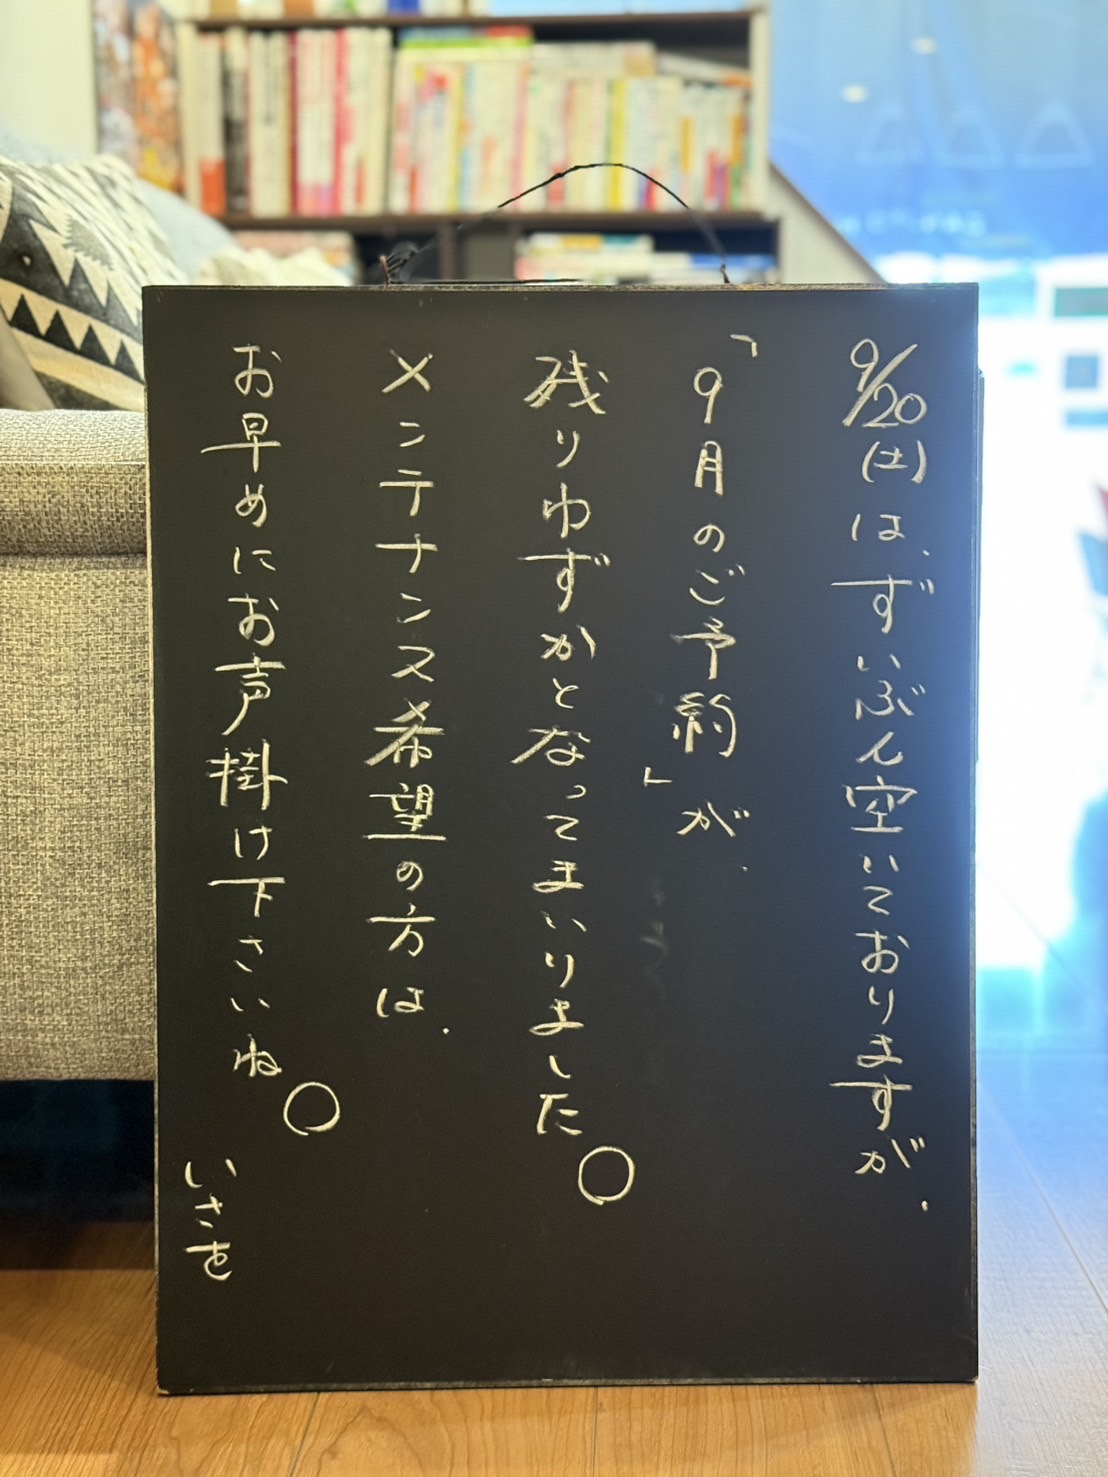 9/20(土)は、ずいぶん空いておりますが、
「9月のご予約」が、
残りわずかとなってまいりました。
メンテナンス希望の方は、
お早めにお声掛け下さいね。
いさを